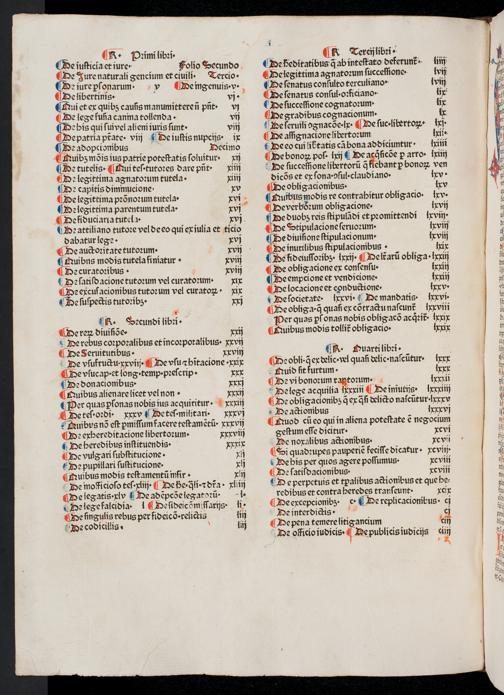 R. Primi libri.
De iusticia et iure. Folio Secundo
De Jure naturali gencium et ciuili. Tercio.
De iure psonarum. v De ingenuis. v.
De libertinis. vj.
Qui et ex quibz causis manumittere nō pñt. vj
De lege fusia canina tollenda. vij
De his qui sui vel alieni iuris sunt. viij
De patria ptāte. viij De iustis nupcijs. ix
De adopcionibus Decimo
Quibz mōis ius patrie potestatis soluitur. xij
De tutelis. Qui tes. tutores dare pñt. xiij
De legittima agnatorum tutela. xiiij
De capitis diminucione. xv
De legittima pronorum tutela xvj
De legittima parentum tutela xvj
De fiduciaria tutela. xvj
De attiliano tutore vel de eo qui ex iulia et ticio
dabatur lege. xvj
De auctoritate tutorum. xvij
Quibus modis tutela finiatur. xviij
De curatoribus. xviij
De satisdacione tutorum vel curatorum. xix
De excusacionibus tutorum vel curatorꝝ. xix
De suspectis tutoribz. xxj
R. Secundi libri.
De rerꝝ diuisiōe. xxij
De rebus corporalibus et incorporalibus. xxvij
De Seruitutibus. xxviij
De vsufructu. xxviij. De vsu et hitacione. xxix
De vsucap. et long. temp. prescrip. xxx
De donacionibus xxxj
Quibus alienare licet vel non xxxij
Per quas psonas nobis ius acquiritur. xxxiij
De tes. ordi. xxxv De tes. militari. xxxvj
Quibus nō est pmissum facere testamētū. xxxvij
De exhereditacione libertorum. xxxviij
De heredibus instituendis. xxxix
De vulgari substitucione. xlj
De pupillari substitucione. xlij
Quibus modis testamentū infir. xliij
De inofficioso tes. xliij. De he. q̄li. et dr̄a. xliij
De legatis. xlv De adēpcōe legatorū. l.
De lege falcidia. l De fideicōmissarijs. li.
De singulis rebus per fideicō. relictis liij
De codicillis. liij
R Tercij libri.
De hēditatibus q̄ ab intestato deferunt. liiij
De legittima agnatorum successione. lvj
De senatus consulto terculiano. lviij
De senatus consul. orficiano. lix
De successione cognatorum. lix
De gradibus cognacionum. lx
De seruili cognacōe. lx. De suc. libertorꝝ. lxj.
De assignacione libertorum lxij.
De eo cui libertatis cā bona addiciuntur lxiij
De bonorꝝ pos. lxj De acq̄sicōe p arro. lxiij
De successione libertorū q̄ fiebant p bonorꝝ ven
diciōs et ex sena. psul. claudiano lxv.
De obligacionibus. lxv
Quibus modis re contrahitur obligacio. lxv.
De verborum obligacione. lxvj.
De duobz reis stipulādi et promittendi lxvij.
De Stipulacione seruorum. lxvij
De diuisione stipulacionum. lxviij
De inutilibus stipulacionibus. lxix.
De fideiussoribz. lxxij. De lrārū obliga. lxxiij
De obligacione ex consensu lxxiij.
De empcione et vendicione. lxxiij
De locacione et cōductione. lxxv.
De societate. lxxvj. De mandatis. lxxvj.
De obliga. q̄ quasi ex cōtractu nascunt lxxviij
Per quas psonas nobis obligacō acq̄rit. lxxix
Quibus modis tollit obligacio. lxxix
R. Quarti libri.
De obli. q̄ ex delic. vel quasi delic. nascūtur. lxxx
Quid sit furtum. lxxx
De vi bonorum raptorum. lxxxij
De lege acquilia lxxxiij De iniurijs. lxxxiiij
De obligacionibz q̄ ex q̄si delicto nascūtur. lxxxv
De actionibus lxxxvj
Quod cū eo qui in aliena potestate ē negocium
gestum esse dicitur. xcvj
De noxalibus actionibus. xcvij
Si quadrupes pauperiē fecisse dicatur. xcviij
De his per quos agere possumus. xcviij
De satisdacionibus. xcviij
De perpetuis et tpalibus actionibus et que he-
redibus et contra heredes transeunt. xcix
De excepcionibz. c De replicacionibus. cj
De interdictis. cj
De pena temere litigancium ciij
De officio iudicis. De publicis iudicijs ciiij